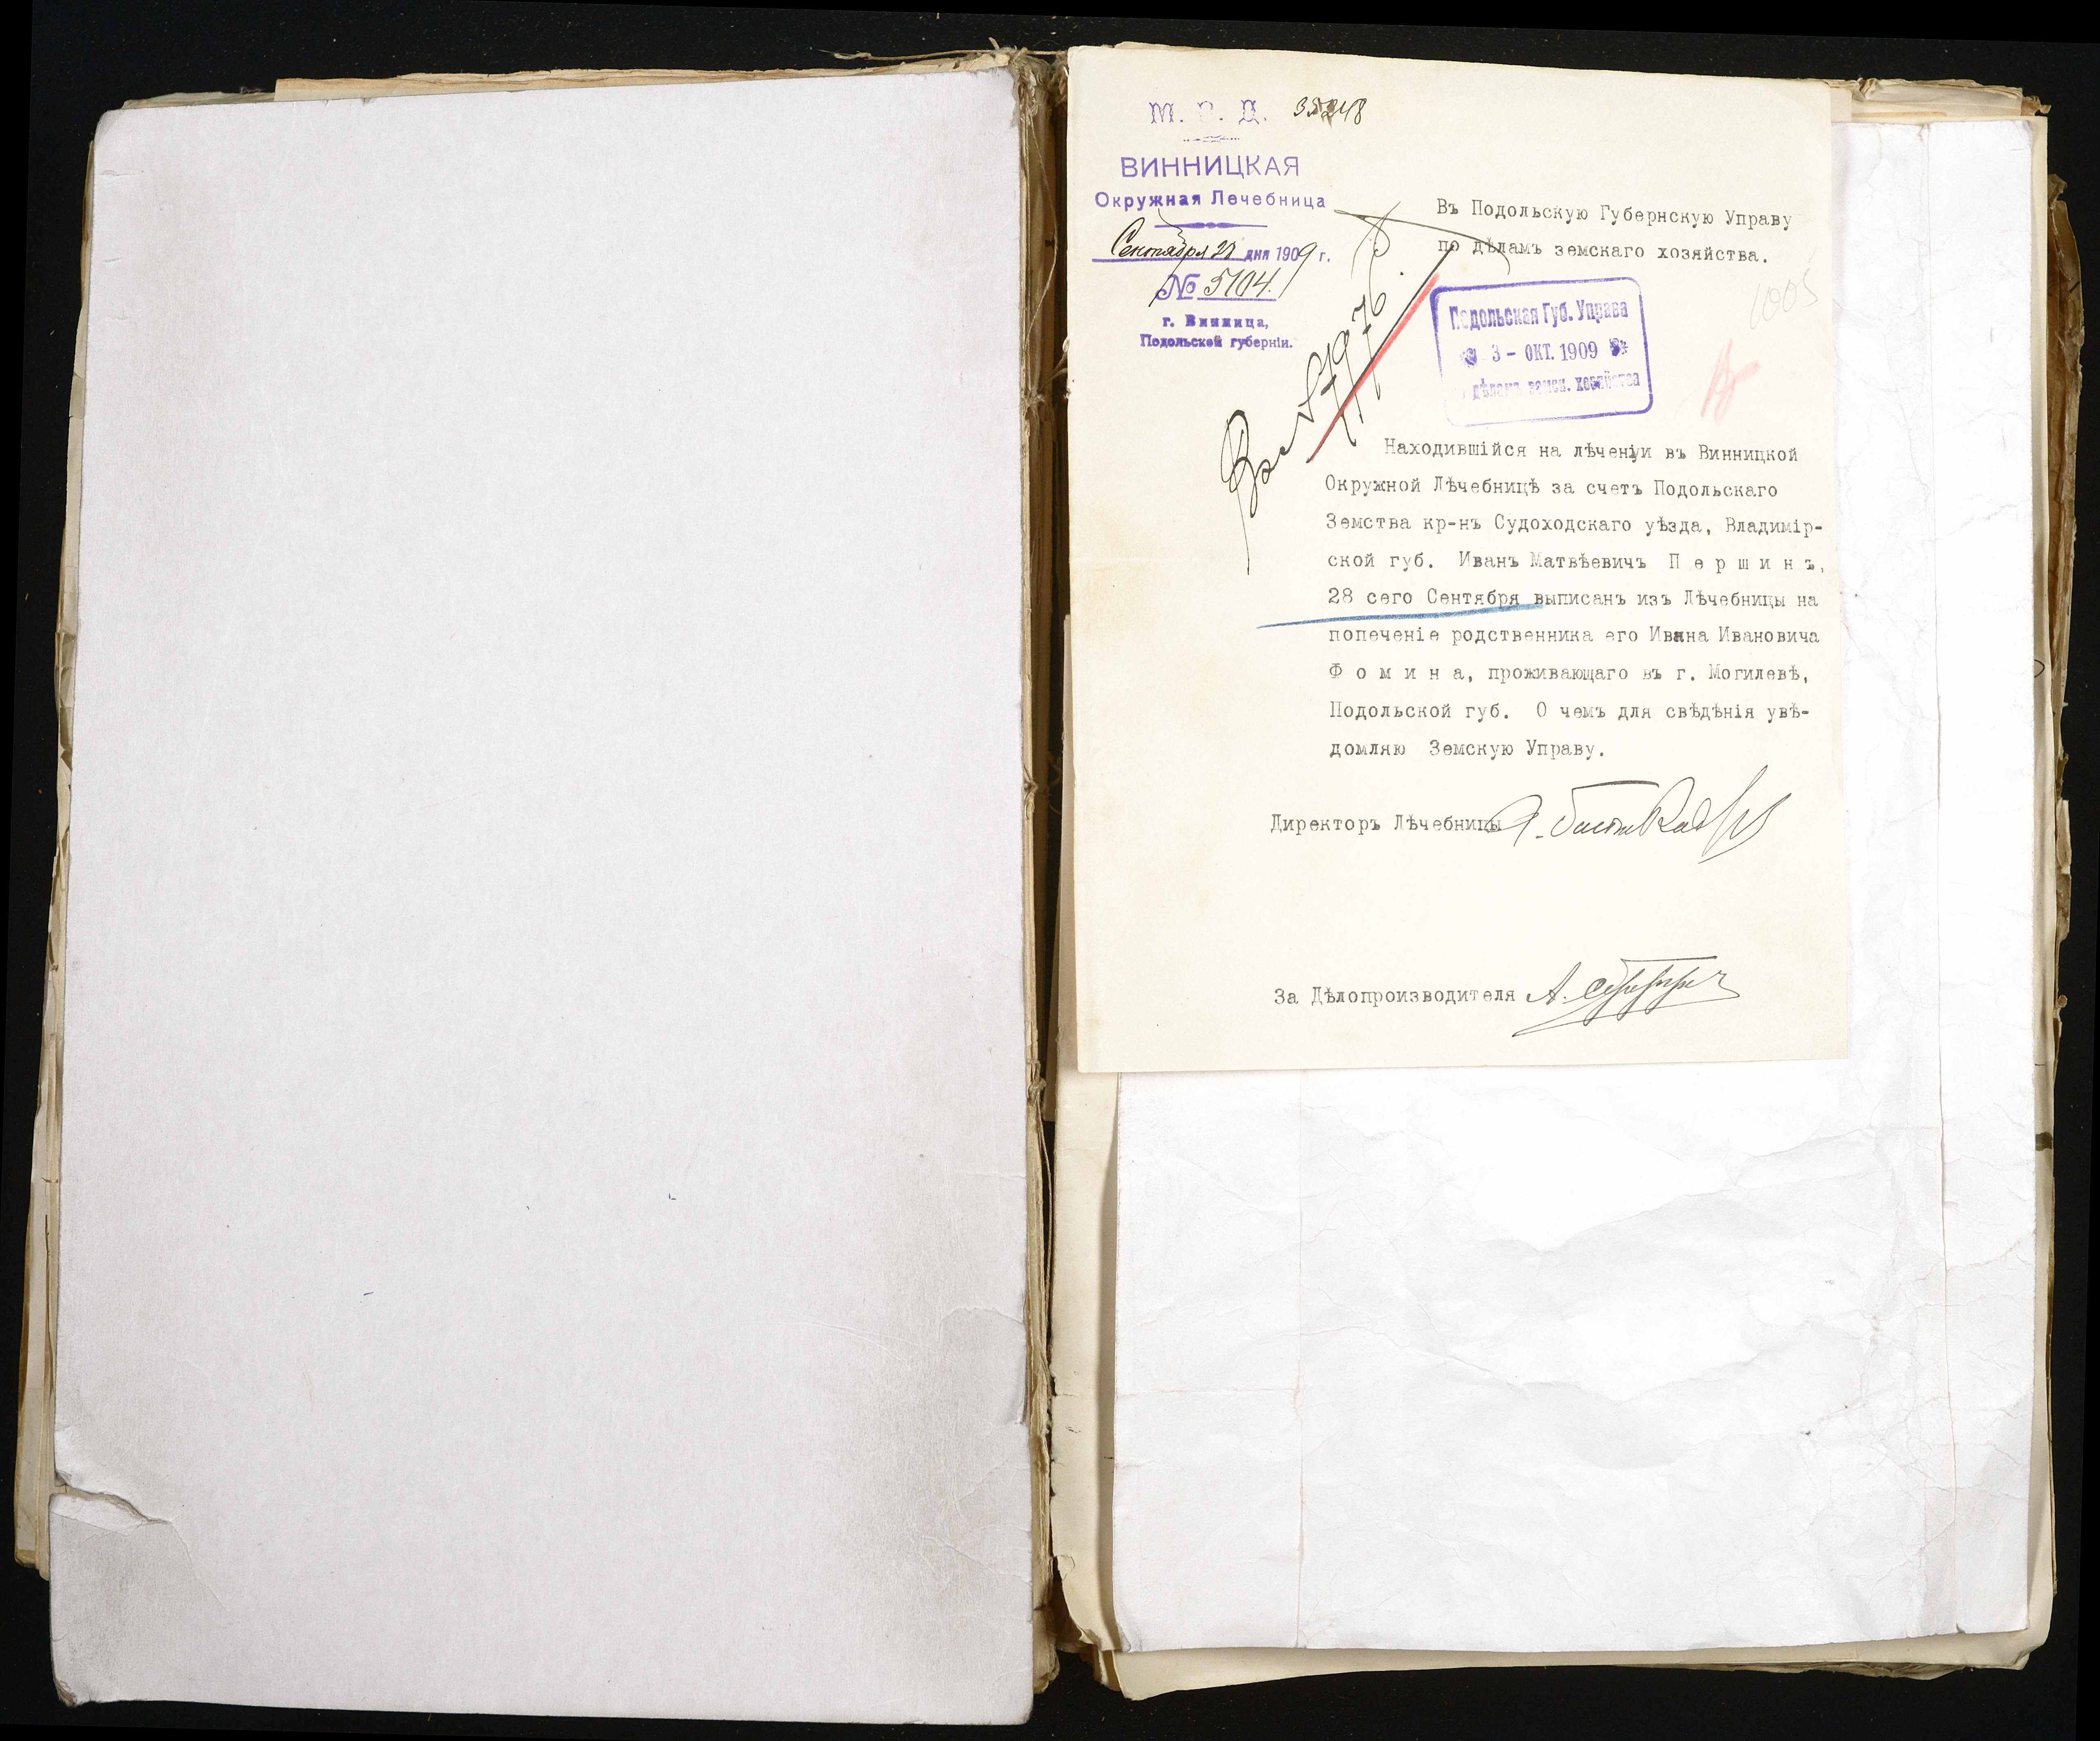 М. В. Д. 35248
ВИННИЦКАЯ
Окружная Лечебница
Сентября дня 1909 г.
№ 5104.
г. Винница,
Подольской губерніи.
Въ Подольскую Губернскую Управу
по дѣламъ земскаго хозяйства.
1005
Подольская Губ. Управа
3 - ОКТ. 1909
дѣламъ земск. хозяйства
Находившійся на лѣченіи въ Винницкой
Окружной Лѣчебницѣ за счетъ Подольскаго
Земства кр-нъ Судоходскаго уѣзда, Владимір-
ской губ. Иванъ Матвѣевичъ П е р ш и н ъ,
28 сего Сентября выписанъ изъ Лѣчебницы на
попеченіе родственника его Ивана Ивановича
Ф о м и н а, проживающаго въ г. Могилевѣ,
Подольской губ. О чемъ для свѣдѣнія увѣ-
домляю Земскую Управу.
Директоръ Лѣчебницы
За Дѣлопроизводителя А.